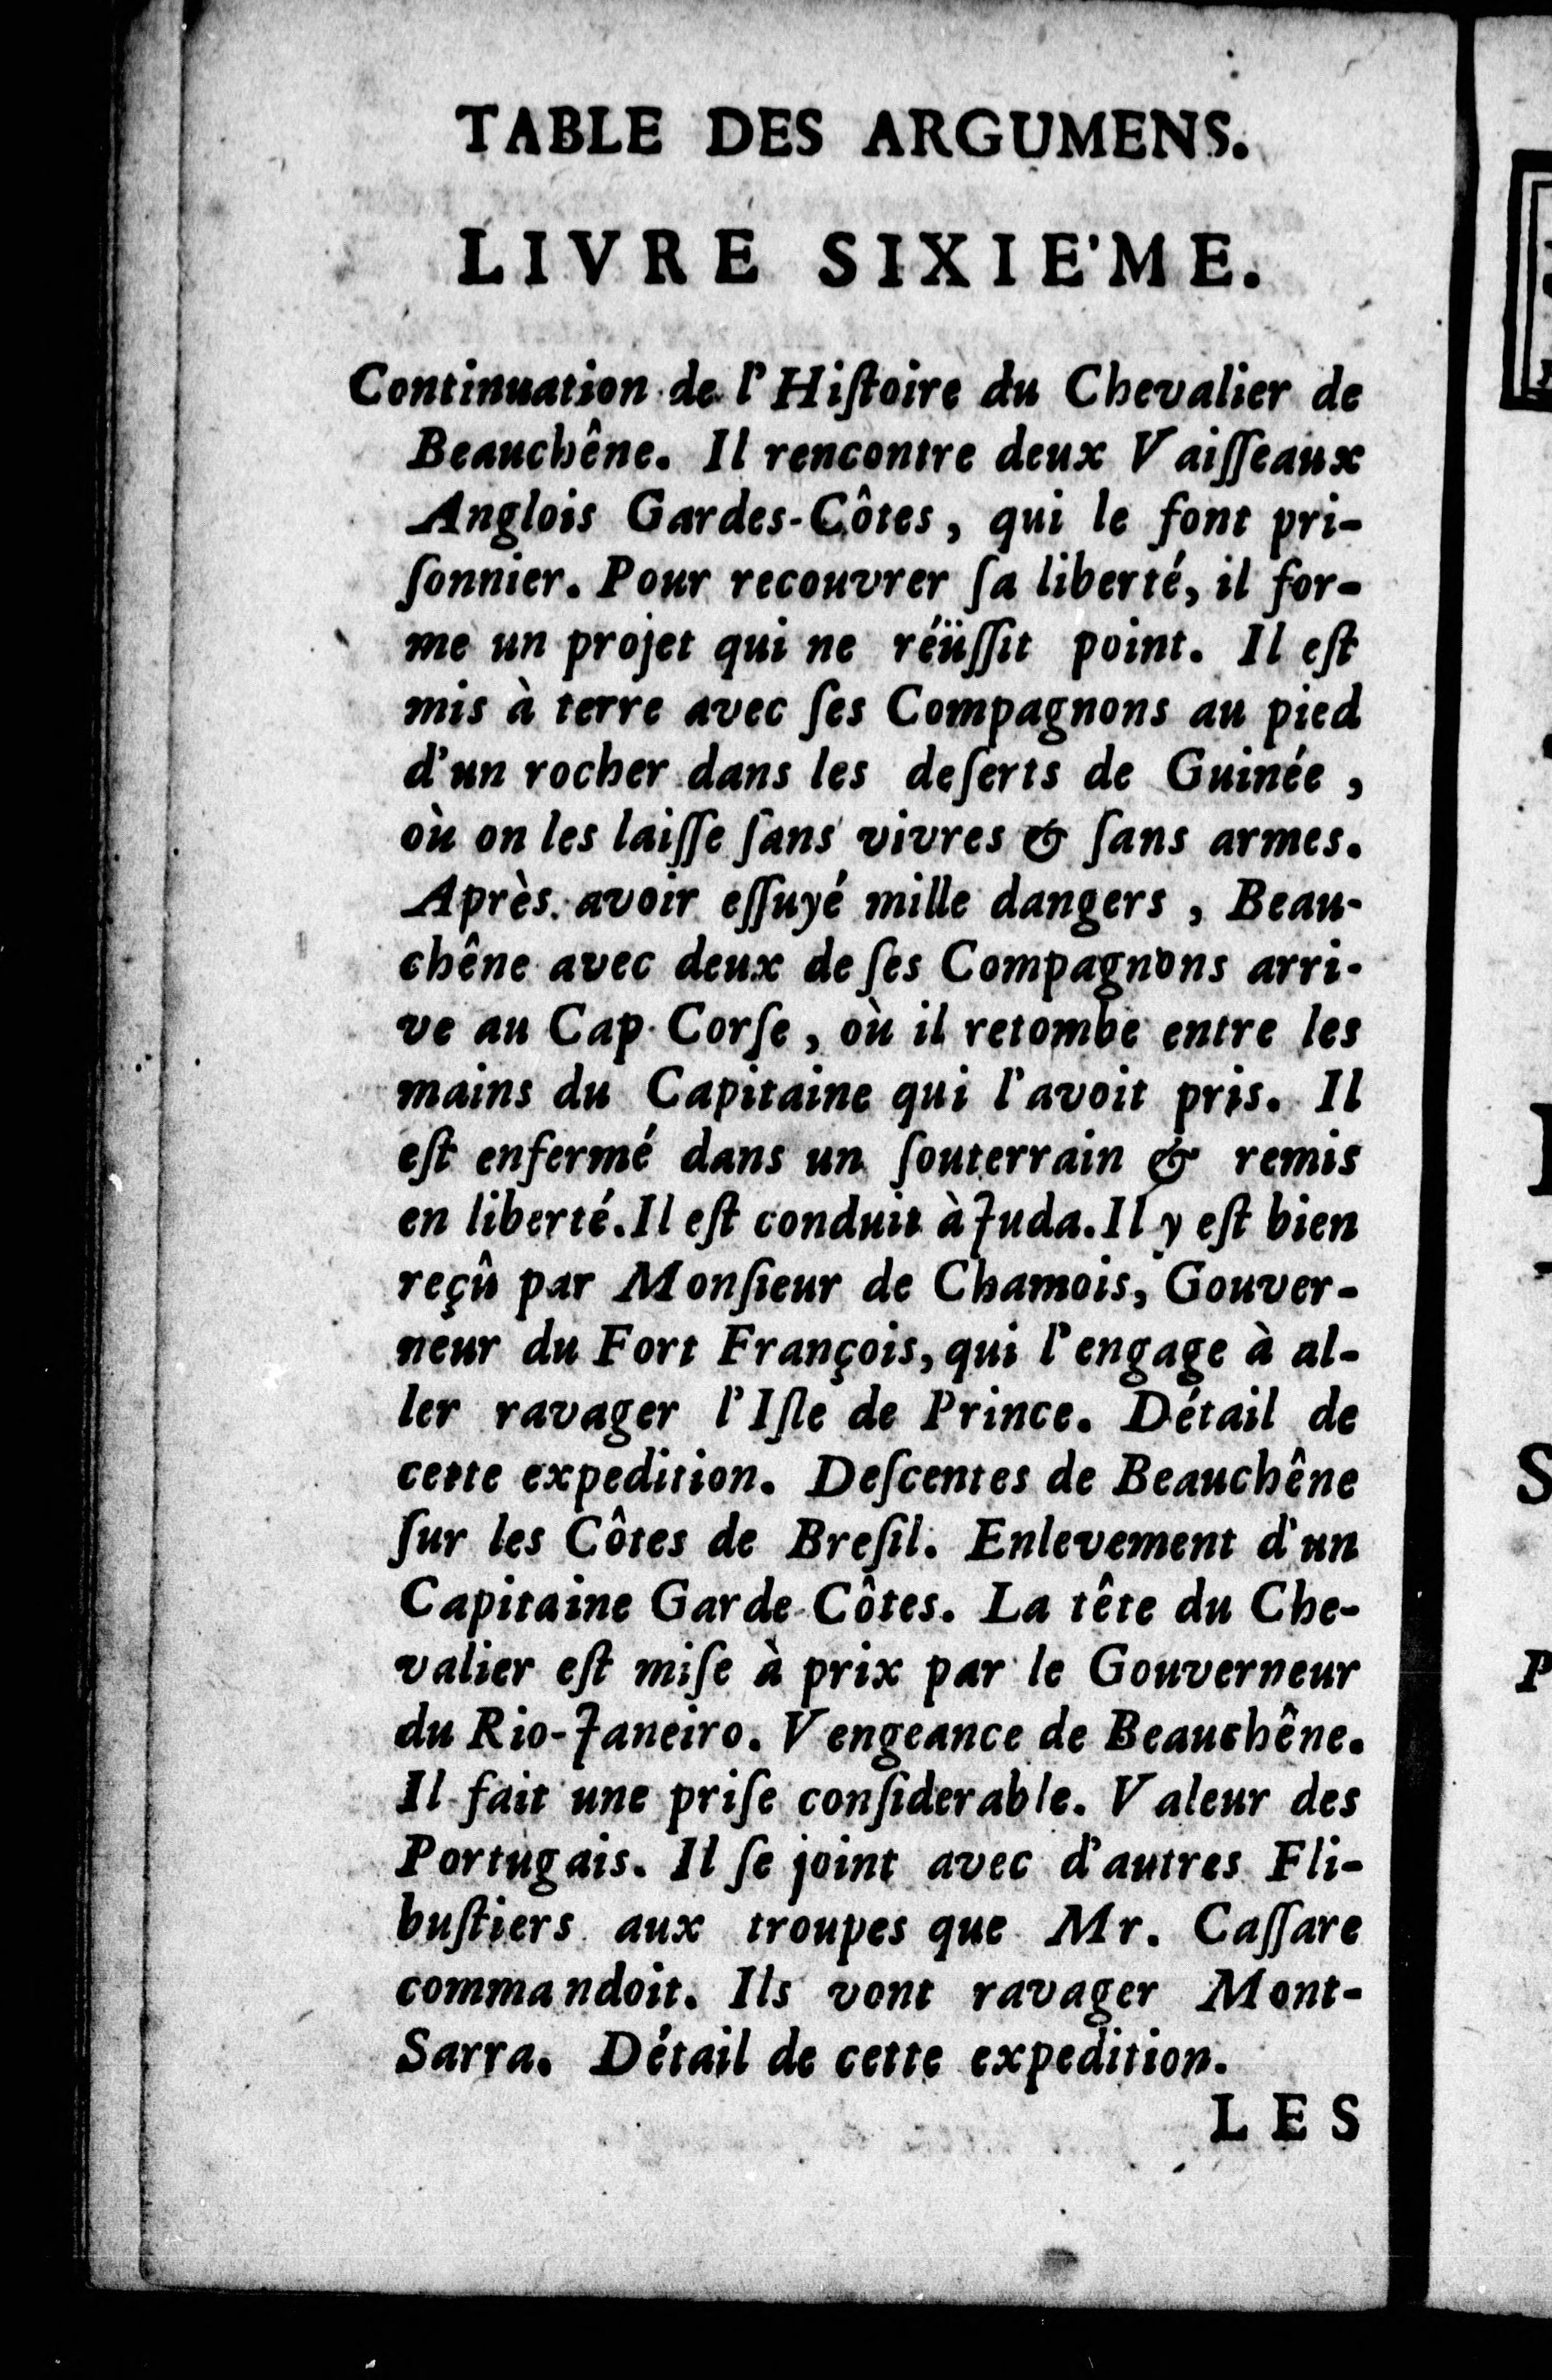 TABLE DES ARGUMENS.
LIVRE SIXIE'ME.
Continuation de l'Hiſtoire du Chevalier de
Beauchêne. Il rencontre deux Vaiſſeaux
Anglois Gardes-Côtes, qui le font pri-
ſonnier. Pour recouvrer ſa liberté, il for-
me un projet qui ne réüſſit point. Il eſt
mis à terre avec ſes Compagnons au pied
d'un rocher dans les deſerts de Guinée,
où on les laiſſe ſans vivres & ſans armes.
Après avoir eſſuyé mille dangers, Beau-
chêne avec deux de ſes Compagnons arri-
ve au Cap Corſe, où il retombe entre les
mains du Capitaine qui l'avoit pris. Il
eſt enfermé dans un ſouterrain & remis
en liberté. Il eſt conduit à Juda. Il y eſt bien
reçû par Monſieur de Chamois, Gouver-
neur du Fort François, qui l'engage à al-
ler ravager l'Iſle de Prince. Détail de
cette expedition. Deſcentes de Beauchêne
ſur les Côtes de Breſil. Enlevement d'un
Capitaine Garde-Côtes. La tête du Che-
valier eſt miſe à prix par le Gouverneur
du Rio-Janeiro. Vengeance de Beauchêne.
Il fait une priſe conſiderable. Valeur des
Portugais. Il ſe joint avec d'autres Fli-
buſtiers aux troupes que Mr. Caſſare
commandoit. Ils vont ravager Mont-
Sarra. Détail de cette expedition.
LES